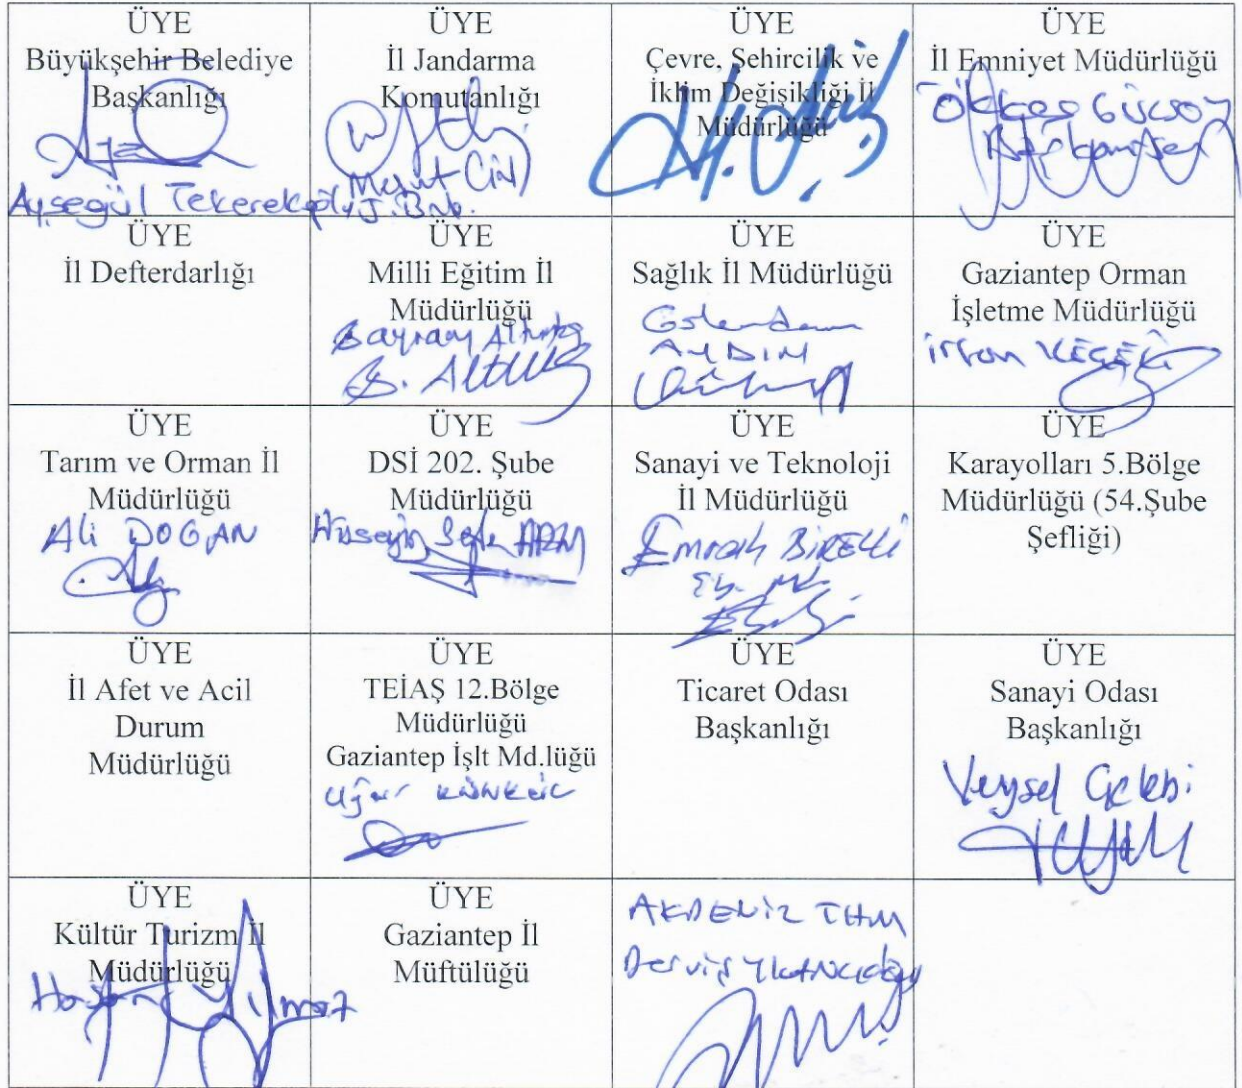 ÜYE
Büyükşehir Belediye
Başkanlığı
Ayşegül Tekerekoğlu
ÜYE
İl Jandarma
Komutanlığı
Mesut
J.Bnb.
ÜYE
Çevre, Şehircilik ve
İklim Değişikliği İl
Müdürlüğü
ÜYE
İl Emniyet Müdürlüğü
Ökkeş Gücsoy
ÜYE
İl Defterdarlığı
ÜYE
Milli Eğitim İl
Müdürlüğü
Bayram Altuntaş
ÜYE
Sağlık İl Müdürlüğü
AYDIN
ÜYE
Gaziantep Orman
İşletme Müdürlüğü
irfan
ÜYE
Tarım ve Orman İl
Müdürlüğü
Ali DOĞAN
ÜYE
DSİ 202. Şube
Müdürlüğü
Hüseyin
ÜYE
Sanayi ve Teknoloji
İl Müdürlüğü
Emrah BİRELLİ
ÜYE
Karayolları 5.Bölge
Müdürlüğü (54.Şube
Şefliği)
ÜYE
İl Afet ve Acil
Durum
Müdürlüğü
ÜYE
TEİAŞ 12.Bölge
Müdürlüğü
Gaziantep İşlt Md.lüğü
Uğur
ÜYE
Ticaret Odası
Başkanlığı
ÜYE
Sanayi Odası
Başkanlığı
Veysel Çelebi
ÜYE
Kültür Turizm İl
Müdürlüğü
Yılmaz
ÜYE
Gaziantep İl
Müftülüğü
AKDENİZ THM
Derviş